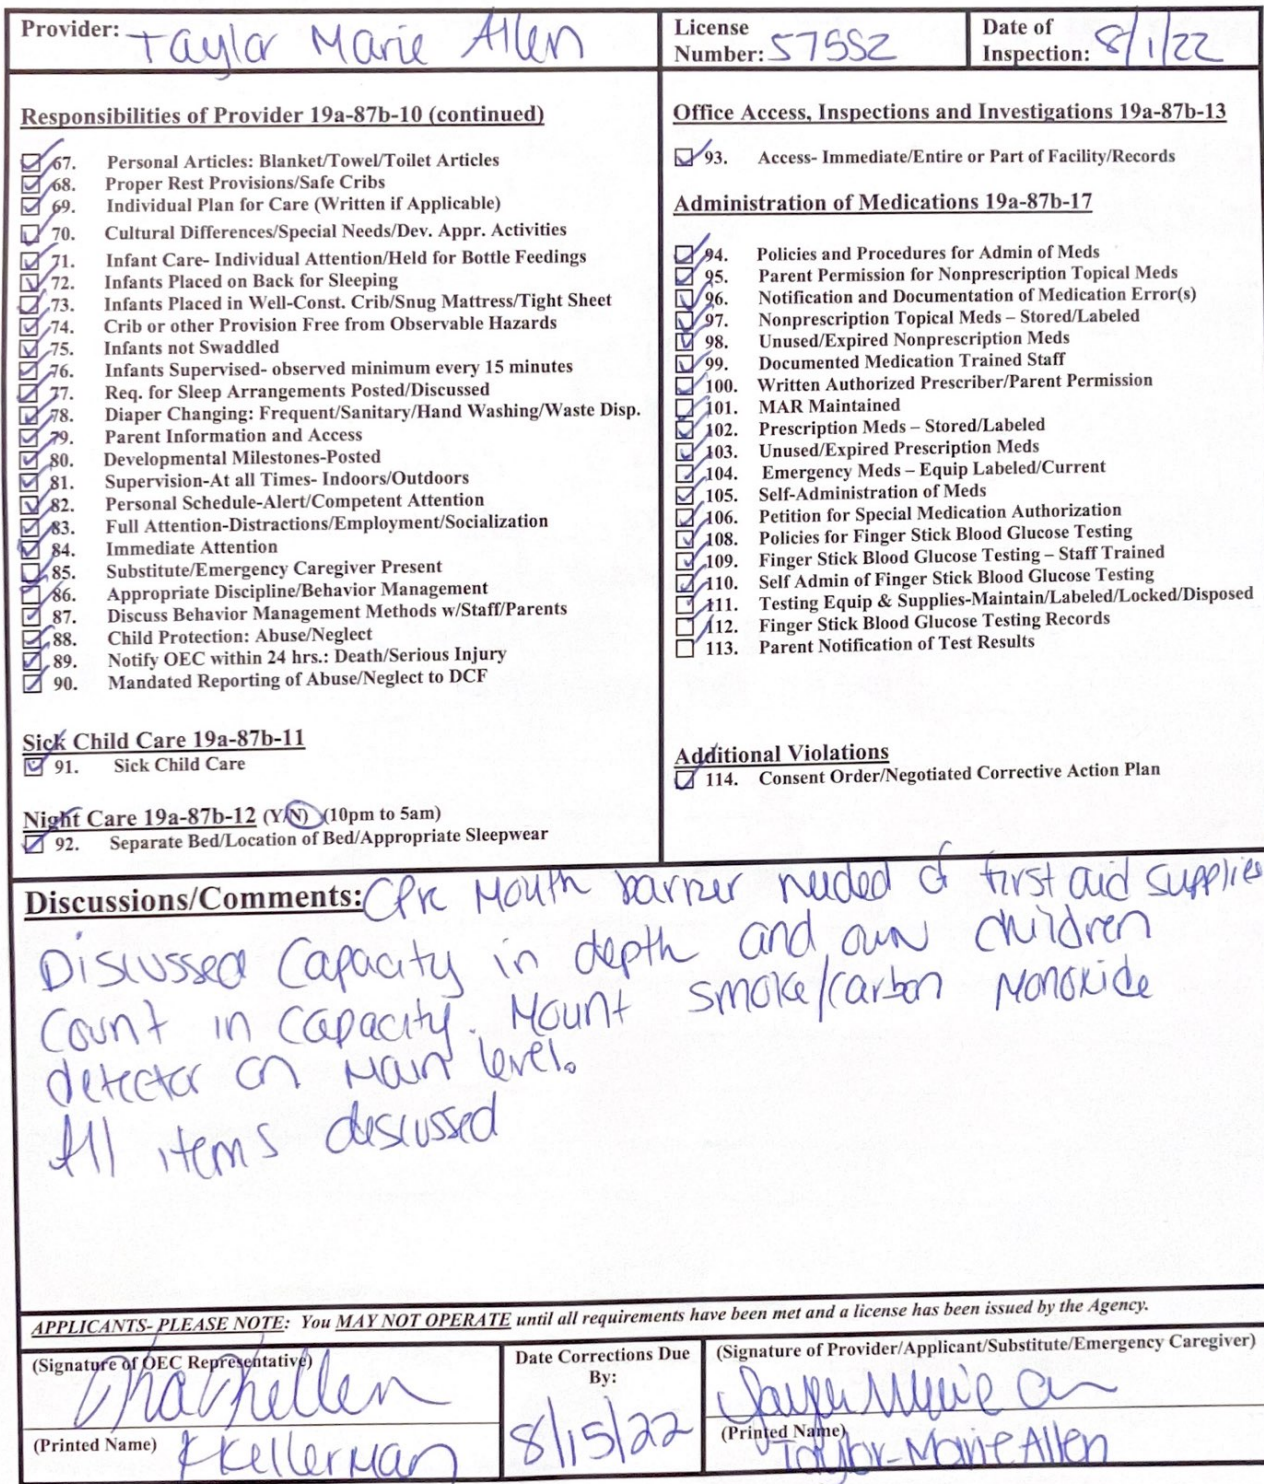 Provider: Taylor Marie Allen
License Number: 57552
Date of Inspection: 8/1/22
Responsibilities of Provider 19a-87b-10 (continued)
67. Personal Articles: Blanket/Towel/Toilet Articles
68. Proper Rest Provisions/Safe Cribs
69. Individual Plan for Care (Written if Applicable)
70. Cultural Differences/Special Needs/Dev. Appr. Activities
71. Infant Care- Individual Attention/Held for Bottle Feedings
72. Infants Placed on Back for Sleeping
73. Infants Placed in Well-Const. Crib/Snug Mattress/Tight Sheet
74. Crib or other Provision Free from Observable Hazards
75. Infants not Swaddled
76. Infants Supervised- observed minimum every 15 minutes
77. Req. for Sleep Arrangements Posted/Discussed
78. Diaper Changing: Frequent/Sanitary/Hand Washing/Waste Disp.
79. Parent Information and Access
80. Developmental Milestones-Posted
81. Supervision-At all Times- Indoors/Outdoors
82. Personal Schedule-Alert/Competent Attention
83. Full Attention-Distractions/Employment/Socialization
84. Immediate Attention
85. Substitute/Emergency Caregiver Present
86. Appropriate Discipline/Behavior Management
87. Discuss Behavior Management Methods w/Staff/Parents
88. Child Protection: Abuse/Neglect
89. Notify OEC within 24 hrs.: Death/Serious Injury
90. Mandated Reporting of Abuse/Neglect to DCF
Sick Child Care 19a-87b-11
91. Sick Child Care
Night Care 19a-87b-12 (Y/N) (10pm to 5am)
92. Separate Bed/Location of Bed/Appropriate Sleepwear
Office Access, Inspections and Investigations 19a-87b-13
93. Access- Immediate/Entire or Part of Facility/Records
Administration of Medications 19a-87b-17
94. Policies and Procedures for Admin of Meds
95. Parent Permission for Nonprescription Topical Meds
96. Notification and Documentation of Medication Error(s)
97. Nonprescription Topical Meds – Stored/Labeled
98. Unused/Expired Nonprescription Meds
99. Documented Medication Trained Staff
100. Written Authorized Prescriber/Parent Permission
101. MAR Maintained
102. Prescription Meds – Stored/Labeled
103. Unused/Expired Prescription Meds
104. Emergency Meds – Equip Labeled/Current
105. Self-Administration of Meds
106. Petition for Special Medication Authorization
108. Policies for Finger Stick Blood Glucose Testing
109. Finger Stick Blood Glucose Testing – Staff Trained
110. Self Admin of Finger Stick Blood Glucose Testing
111. Testing Equip & Supplies-Maintain/Labeled/Locked/Disposed
112. Finger Stick Blood Glucose Testing Records
113. Parent Notification of Test Results
Additional Violations
114. Consent Order/Negotiated Corrective Action Plan
Discussions/Comments: CPR Mouth barrier needed first aid supplies
Discussed Capacity in depth and own children
count in capacity. Mount smoke/carbon Monoxide
detector on Main level.
All items discussed
APPLICANTS- PLEASE NOTE: You MAY NOT OPERATE until all requirements have been met and a license has been issued by the Agency.
(Signature of OEC Representative)
(Printed Name) K Kellerman
Date Corrections Due
By:
8/15/22
(Signature of Provider/Applicant/Substitute/Emergency Caregiver)
(Printed Name)
Taylor-Marie Allen